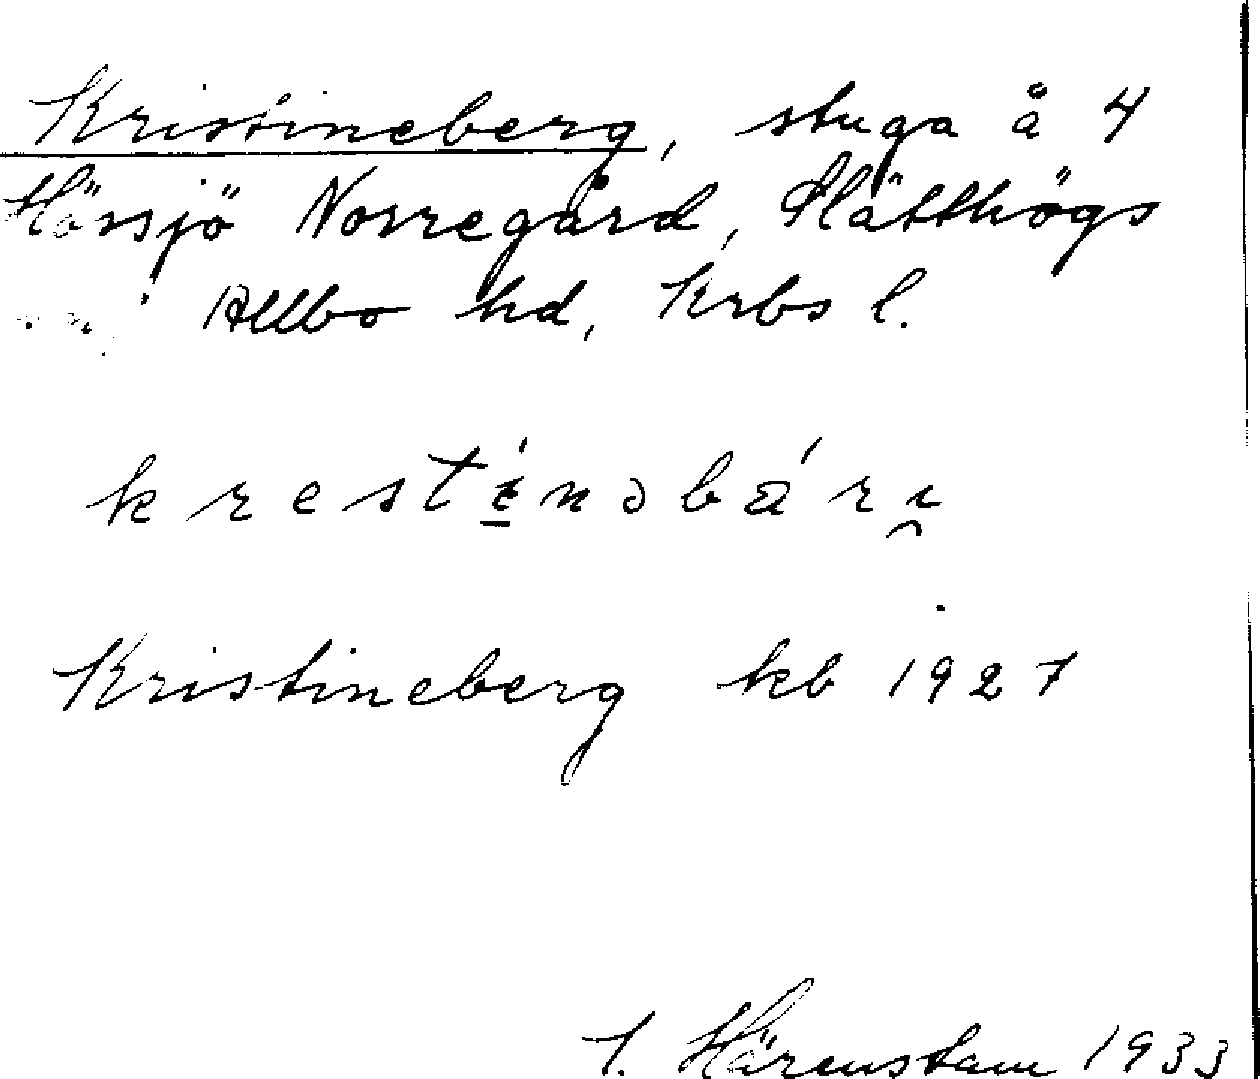 Kristineberg, stuga å 4
Hössjö Norregård, Slätthögs
Allbo hd, Krbs l.
krestinəbári̯
Kristineberg kb 1927
I. Härenstam 1933